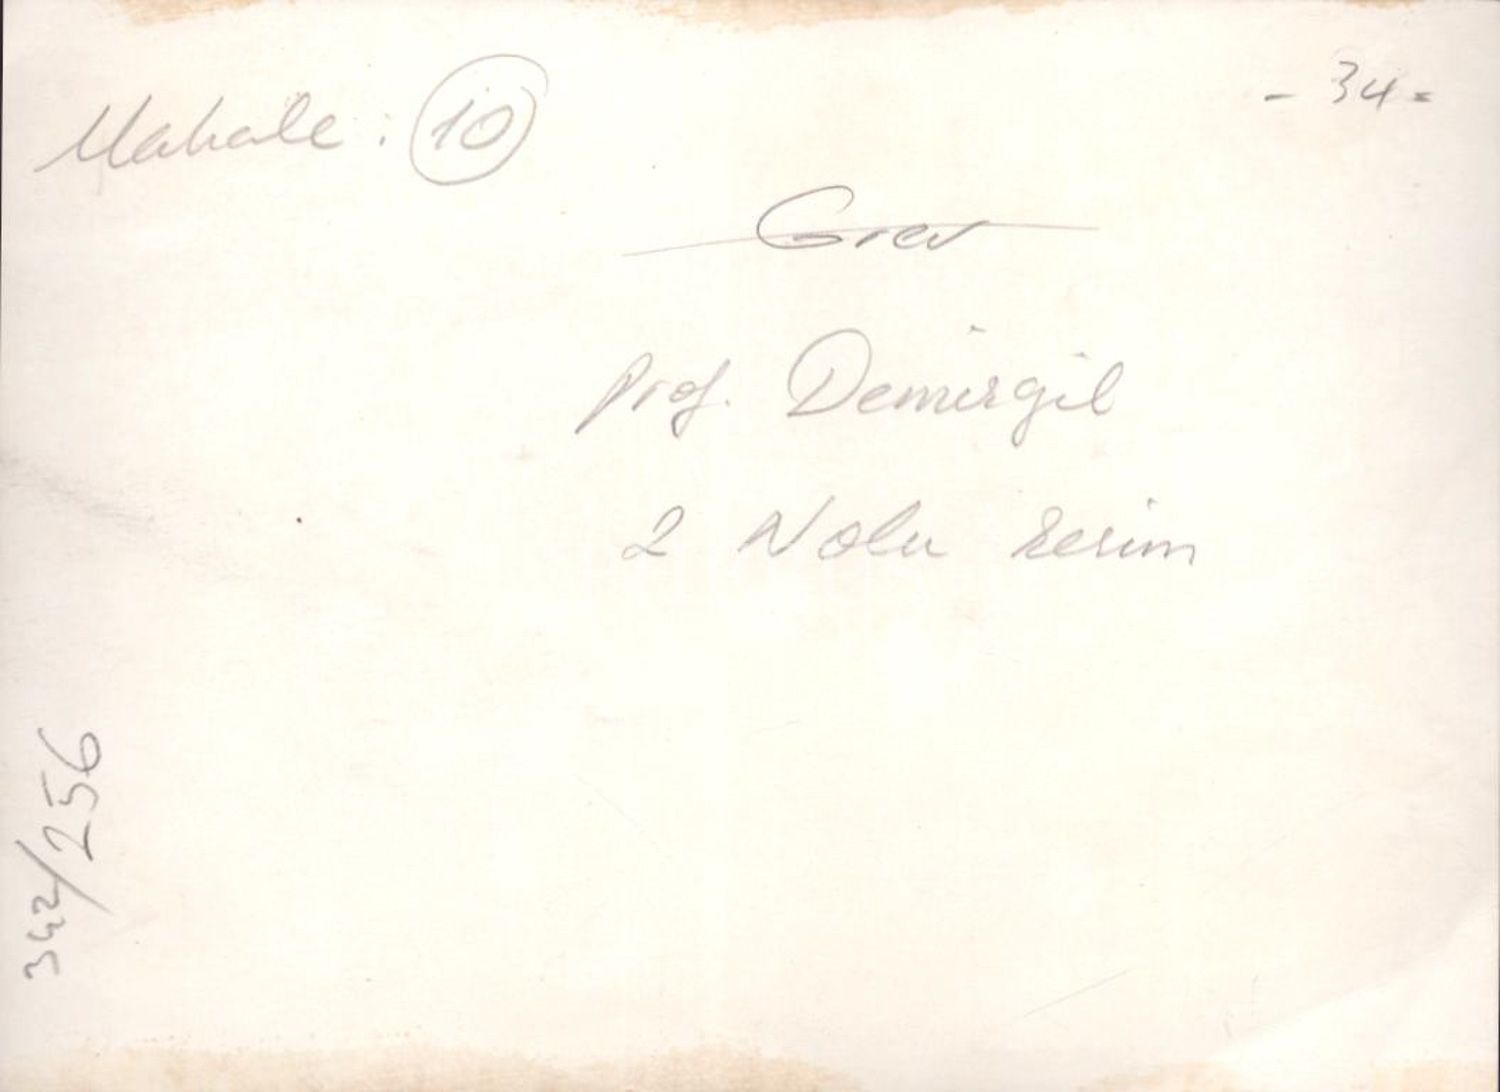 Makale : 10
- 34 =
Grev
Prof. Demirgil
2 Nolu Resim
342/256